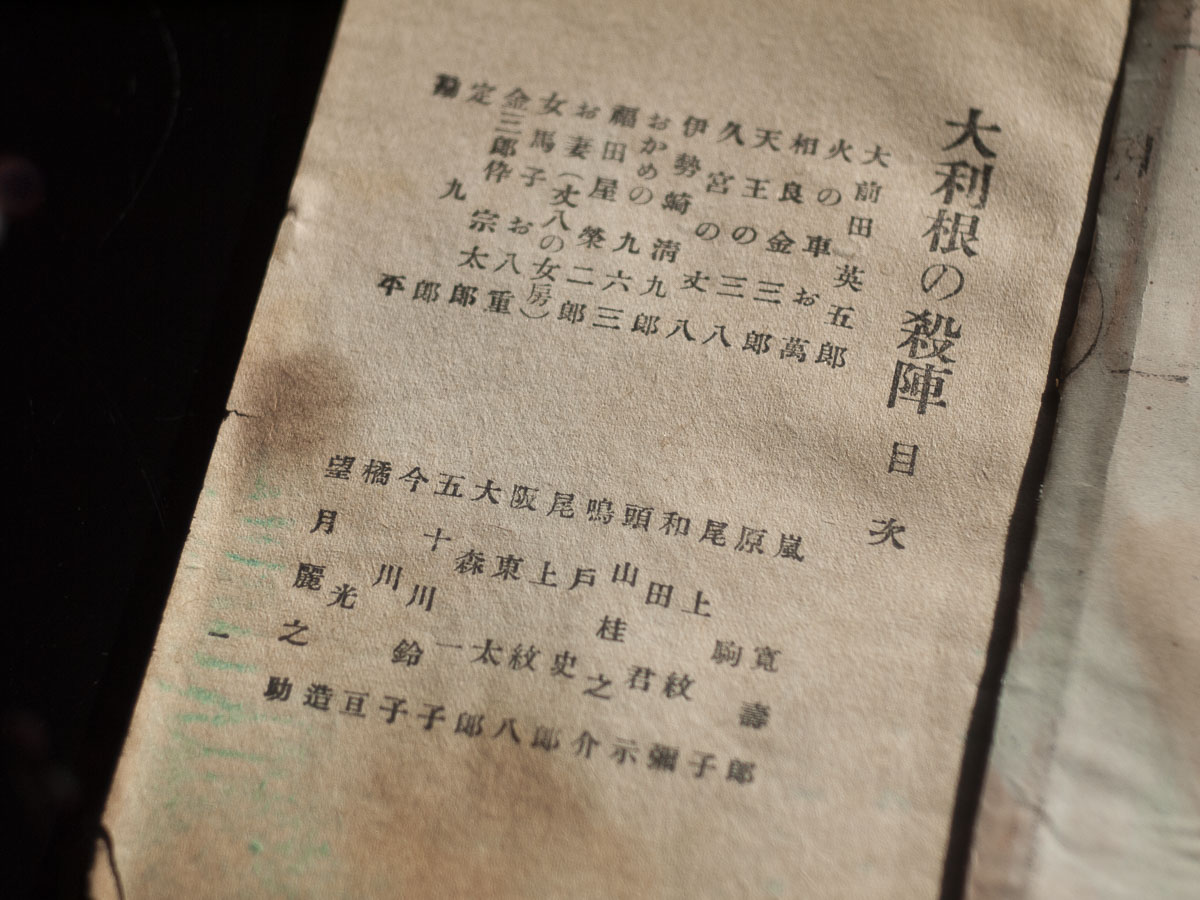 大利根の殺陣 目次
大前田英五郎 嵐寛壽郎
火の車お萬 原駒子
相良金三郎 尾上紋彌
天王の三八 和田君示
久宮の丈八 頭山桂之介
伊勢崎の清九郎 鳴戸史郎
おかめの九六三 尾上紋八
福田屋榮二郎 阪東太郎
お妻(丈八の女房) 大森一子
女馬子お八重 五十川鈴子
金三郎伜宗太郎 今川亘
定九郎 橘光造
平 望月麗之助